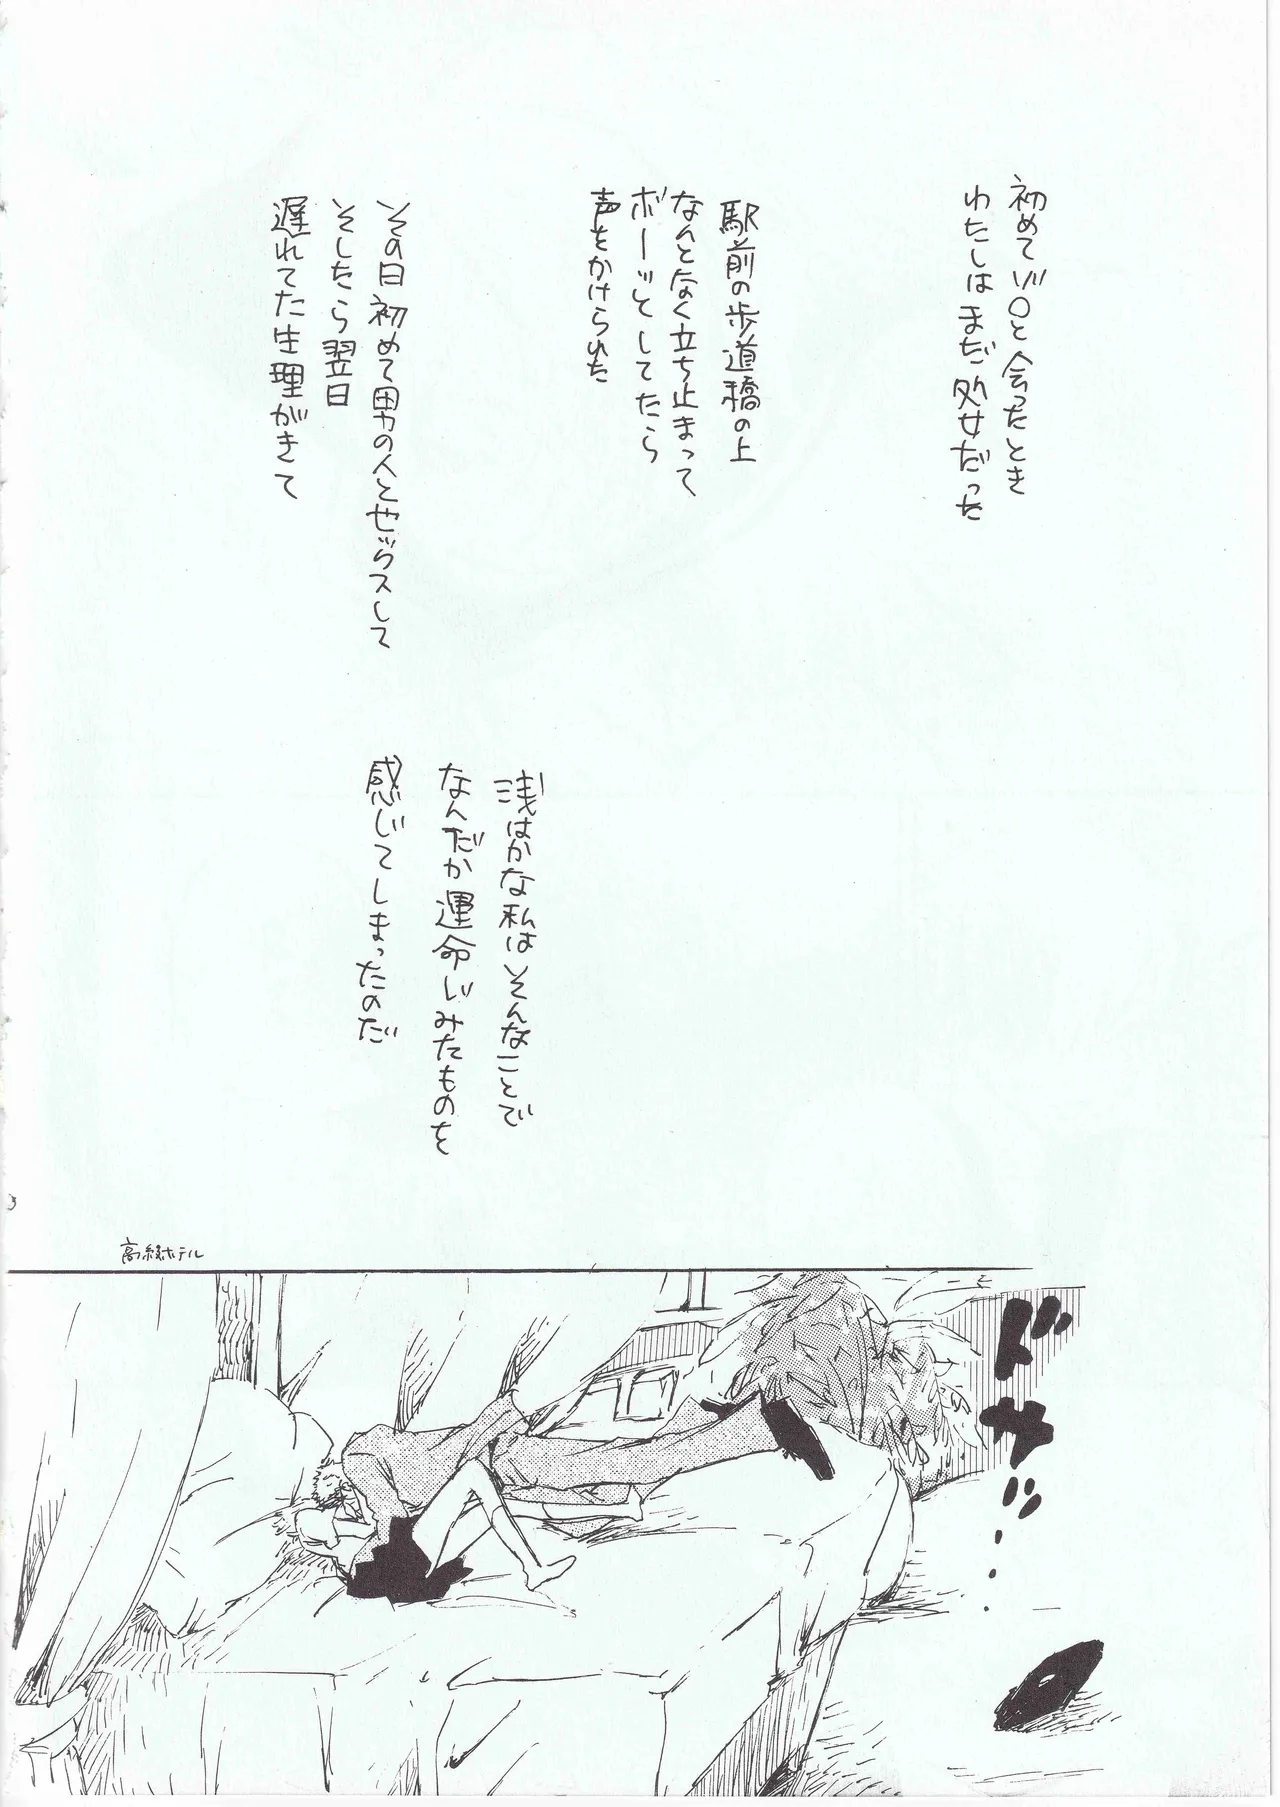 初めてゾロと会ったとき
わたしはまだ処女だった
駅前の歩道橋の上
なんとなく立ち止まって
ボーッとしてたら
声をかけられた
その日初めて男の人とセックスして
そしたら翌日
遅れてた生理がきて
浅はかな私はそんなことで
なんだか運命じみたものを
感じてしまったのだ
高級ホテル
ドサッ・・・